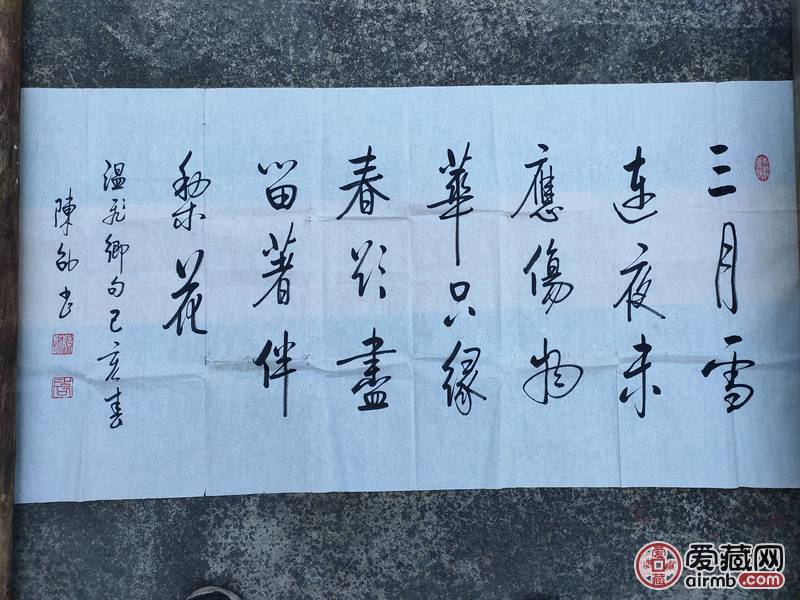 三月雪
連夜未
應傷物
華只緣
春欲盡
留著伴
梨花
温飛卿句己亥春
陳韶书
爱藏网
airmb.com